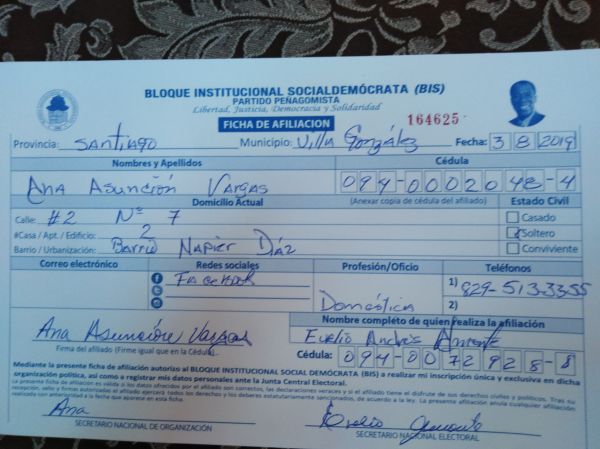 BLOQUE INSTITUCIONAL SOCIALDEMÓCRATA (BIS)
PARTIDO PEÑAGOMISTA
Libertad, Justicia, Democracia y Solidaridad
FICHA DE AFILIACION 164625
Provincia: SANTIAGO Municipio: Villa González Fecha: 3 8 2019
Nombres y Apellidos Cédula
Ana Asunción Vargas 094-0002048-4
Domicilio Actual (Anexar copia de cédula del afiliado) Estado Civil
Calle: #2 Nº 7 Casado
#Casa / Apt. / Edificio: 2 Soltero
Barrio / Urbanización: Barrio Napier Díaz Conviviente
Correo electrónico Redes sociales Profesión/Oficio Teléfonos
Facebook 1) 829-513-3355
Doméstica 2)
Nombre completo de quien realiza la afiliación
Ana Asunción Vargas Evelio Andrés
Firma del afiliado (Firme igual que en la Cédula) Cédula: 094-0072928-8
Mediante la presente ficha de afiliación autorizo al BLOQUE INSTITUCIONAL SOCIAL DEMÓCRATA (BIS) a realizar mi inscripción única y exclusiva en dicha
organización política, así como a registrar mis datos personales ante la Junta Central Electoral.
La presente ficha de afiliación es válida si los datos ofrecidos por el afiliado son correctos, las declaraciones veraces y si el afiliado tiene el disfrute de sus derechos civiles y políticos. Tras su
recepción, sello y firmas autorizadas el afiliado ejercerá todos los derechos y los deberes estatutariamente sancionados, de acuerdo a la ley. La presente afiliación anula cualquier afiliación
realizada con anterioridad a la fecha que aparece en esta ficha.
Ana Evelio
SECRETARIO NACIONAL DE ORGANIZACIÓN SECRETARIO NACIONAL ELECTORAL